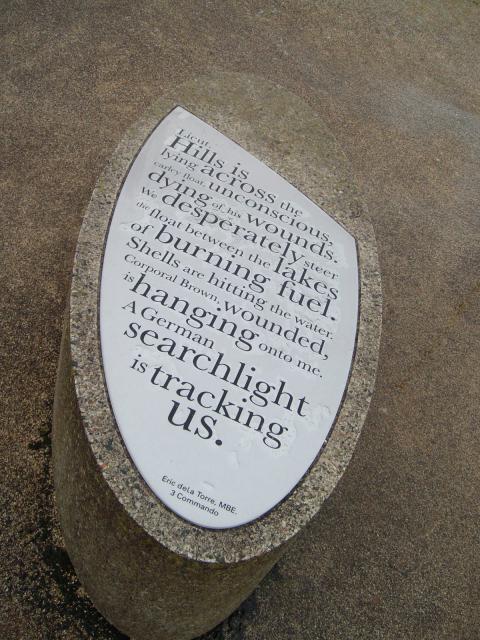 Lieut.
Hills is
lying across the
carley float, unconscious,
dying of his wounds.
We desperately steer
the float between the lakes
of burning fuel.
Shells are hitting the water.
Corporal Brown, wounded,
is hanging onto me.
A German
searchlight
is tracking
us.
Eric deLa Torre, MBE.
3 Commando